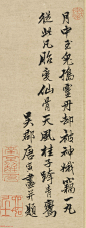 月中玉兔擣靈丹却被神娥竊一丸
從此凡胎變仙骨天風桂子跨青鸞
吳郡唐寅畫并題